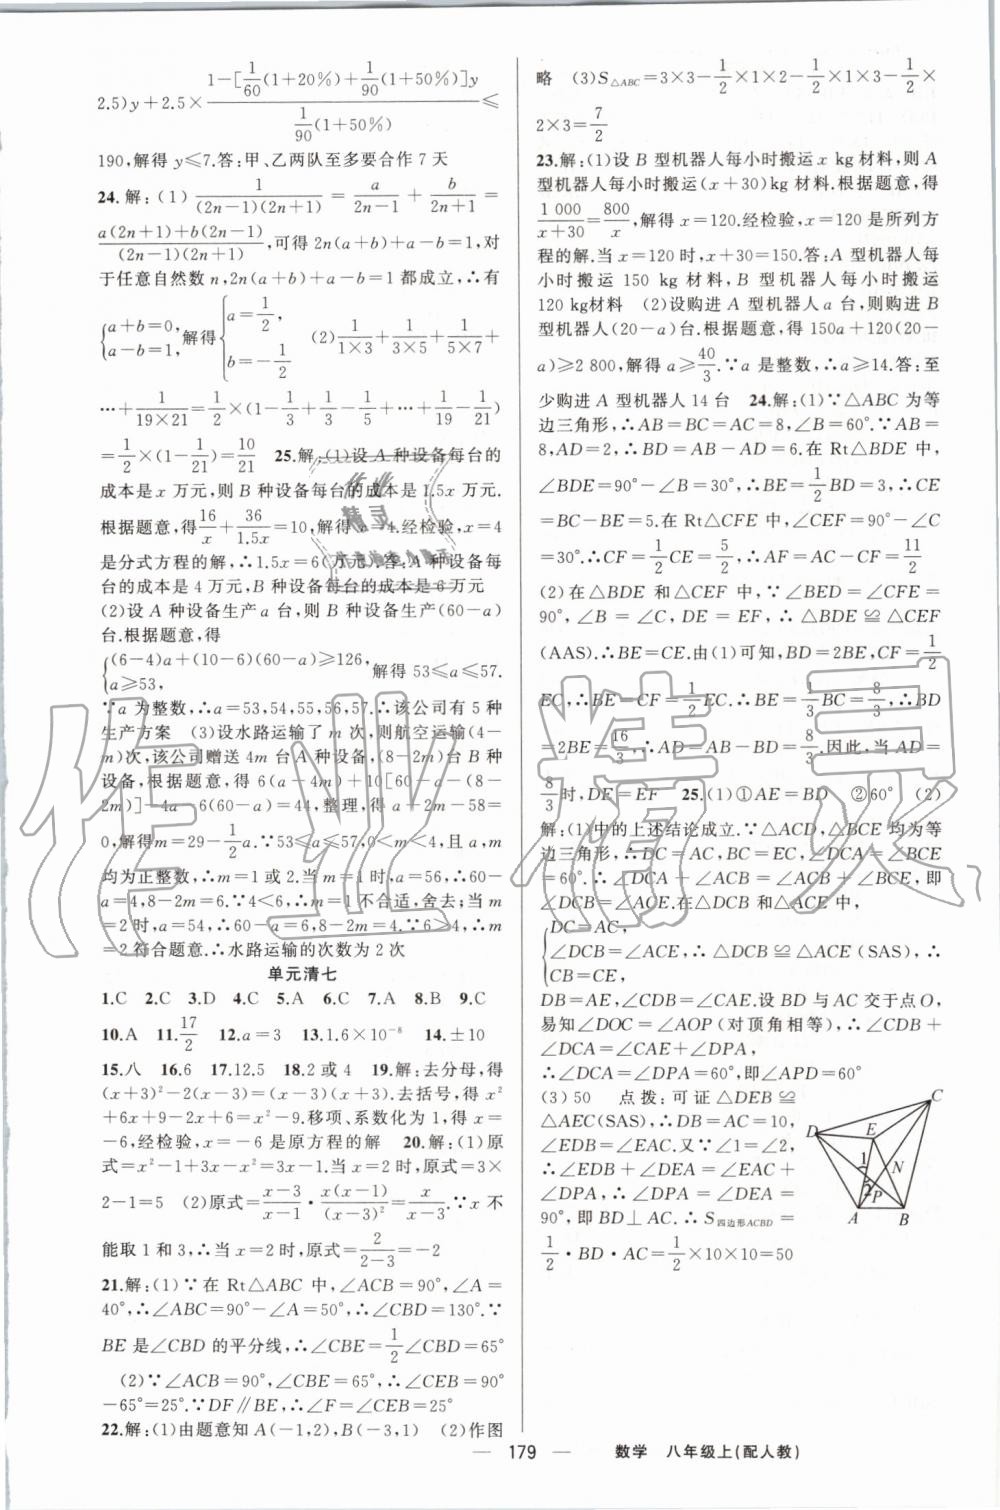 2.5)y+2.5×(1-[1/60(1+20%)+1/90(1+50%)]y)/(1/90(1+50%))≤
190,解得 y≤7.答:甲、乙两队至多要合作 7 天
24.解:(1) 1/((2n-1)(2n+1)) = a/(2n-1) + b/(2n+1) =
(a(2n+1)+b(2n-1))/((2n-1)(2n+1)),可得 2n(a+b)+a-b=1,对
于任意自然数 n,2n(a+b)+a-b=1 都成立,∴有
{a+b=0, a-b=1, 解得 {a=1/2, b=-1/2 (2) 1/(1×3)+1/(3×5)+1/(5×7)+
…+1/(19×21)=1/2×(1-1/3+1/3-1/5+…+1/19-1/21)
=1/2×(1-1/21)=10/21 25.解:(1)设 A 种设备每台的
成本是 x 万元,则 B 种设备每台的成本是 1.5x 万元.
根据题意,得 16/x+36/1.5x=10,解得 x=4.经检验,x=4
是分式方程的解,∴1.5x=6(万元).答:A 种设备每
台的成本是 4 万元,B 种设备每台的成本是 6 万元
(2)设 A 种设备生产 a 台,则 B 种设备生产(60-a)
台.根据题意,得
{(6-4)a+(10-6)(60-a)≥126, a≥53, 解得 53≤a≤57.
∵a 为整数,∴a=53,54,55,56,57.∴该公司有 5 种
生产方案 (3)设水路运输了 m 次,则航空运输(4-
m)次,该公司赠送 4m 台 A 种设备,(8-2m)台 B 种
设备,根据题意,得 6(a-4m)+10[60-a-(8-
2m)]-4a-6(60-a)=44,整理,得 a+2m-58=
0,解得 m=29-1/2a.∵53≤a≤57,0<m<4,且 a,m
均为正整数,∴m=1 或 2.当 m=1 时,a=56,∴60-
a=4,8-2m=6.∵4<6,∴m=1 不合适,舍去;当 m
=2 时,a=54,∴60-a=6,8-2m=4.∵6>4,∴m
=2 符合题意.∴水路运输的次数为 2 次
单元清七
1.C 2.C 3.D 4.C 5.A 6.C 7.A 8.B 9.C
10.A 11.17/2 12.a=3 13.1.6×10⁻⁸ 14.±10
15.八 16.6 17.12.5 18.2 或 4 19.解:去分母,得
(x+3)²-2(x-3)=(x-3)(x+3).去括号,得 x²
+6x+9-2x+6=x²-9.移项、系数化为 1,得 x=
-6,经检验,x=-6 是原方程的解 20.解:(1)原
式=x²-1+3x-x²=3x-1.当 x=2 时,原式=3×
2-1=5 (2)原式=(x-3)/(x-1)·x(x-1)/(x-3)²=x/(x-3).∵x 不
能取 1 和 3,∴当 x=2 时,原式=2/(2-3)=-2
21.解:(1)∵在 Rt△ABC 中,∠ACB=90°,∠A=
40°,∴∠ABC=90°-∠A=50°,∴∠CBD=130°.∵
BE 是∠CBD 的平分线,∴∠CBE=1/2∠CBD=65°
(2)∵∠ACB=90°,∠CBE=65°,∴∠CEB=90°
-65°=25°.∵DF∥BE,∴∠F=∠CEB=25°
22.解:(1)由题意知 A(-1,2),B(-3,1) (2)作图
略 (3)S△ABC=3×3-1/2×1×2-1/2×1×3-1/2×
2×3=7/2
23.解:(1)设 B 型机器人每小时搬运 x kg 材料,则 A
型机器人每小时搬运(x+30)kg 材料.根据题意,得
1 000/(x+30)=800/x,解得 x=120.经检验,x=120 是所列方
程的解.当 x=120 时,x+30=150.答:A 型机器人每
小时搬运 150 kg 材料,B 型机器人每小时搬运
120 kg材料 (2)设购进 A 型机器人 a 台,则购进 B
型机器人(20-a)台.根据题意,得 150a+120(20-
a)≥2 800,解得 a≥40/3.∵a 是整数,∴a≥14.答:至
少购进 A 型机器人 14 台 24.解:(1)∵△ABC 为等
边三角形,∴AB=BC=AC=8,∠B=60°.∵AB=
8,AD=2,∴BD=AB-AD=6.在 Rt△BDE 中,
∠BDE=90°-∠B=30°,∴BE=1/2BD=3,∴CE
=BC-BE=5.在 Rt△CFE 中,∠CEF=90°-∠C
=30°.∴CF=1/2CE=5/2,∴AF=AC-CF=11/2
(2)在△BDE 和△CEF 中,∵∠BED=∠CFE=
90°,∠B=∠C,DE=EF,∴△BDE≌△CEF
(AAS).∴BE=CF.由(1)可知,BD=2BE,CF=1/2
EC,∴BE=CF=1/2EC.∴BE=1/3BC=8/3,∴BD
=2BE=16/3,∴AD=AB-BD=8/3.因此,当 AD=
8/3时,DE=EF 25.(1)①AE=BD ②60° (2)
解:(1)中的上述结论成立.∵△ACD,△BCE 均为等
边三角形,∴DC=AC,BC=EC,∠DCA=∠BCE
=60°.∴∠DCA+∠ACB=∠ACB+∠BCE,即
∠DCB=∠ACE.在△DCB 和△ACE 中,
{DC=AC, ∠DCB=∠ACE, CB=CE, ∴△DCB≌△ACE(SAS),∴
DB=AE,∠CDB=∠CAE.设 BD 与 AC 交于点 O,
易知∠DOC=∠AOP(对顶角相等),∴∠CDB+
∠DCA=∠CAE+∠DPA,
∴∠DCA=∠DPA=60°,即∠APD=60°
(3)50 点拨:可证△DEB≌
△AEC(SAS),∴DB=AC=10,
∠EDB=∠EAC.又∵∠1=∠2,
∴∠EDB+∠DEA=∠EAC+
∠DPA,∴∠DPA=∠DEA=
90°,即 BD⊥AC.∴S四边形ACBD=
1/2·BD·AC=1/2×10×10=50
C
D
E
1
N
2
P
A
B
— 179 — 数学 八年级上(配人教)
作业精灵